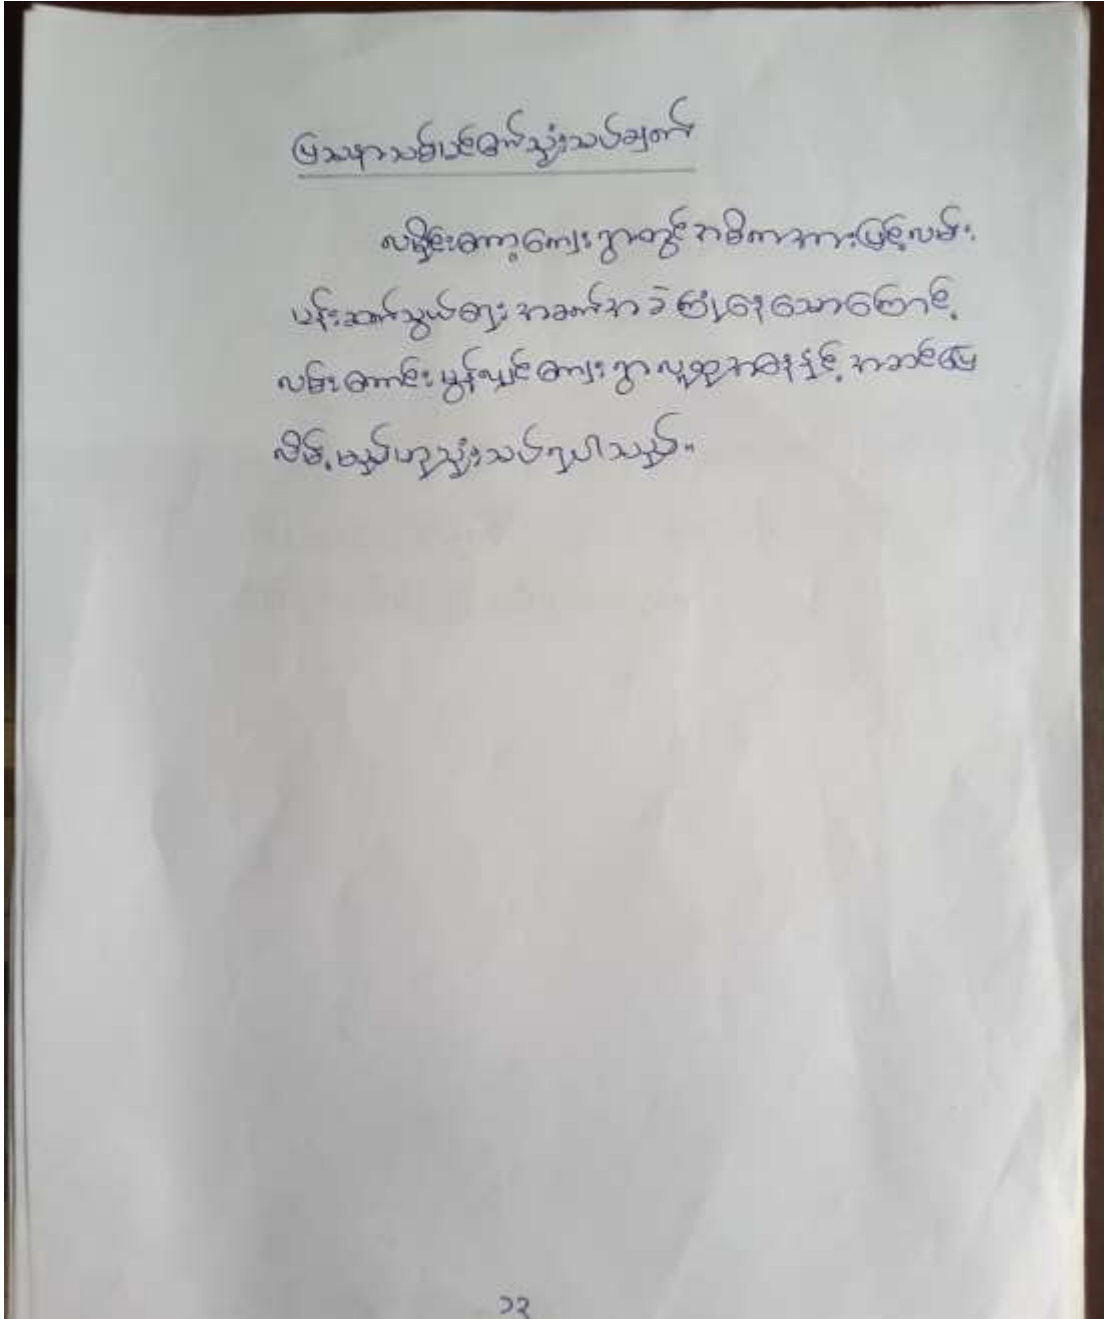 ပြဿနာသစ်ပင်စောက်သုံးသပ်ချက်
လှိုင်းတော့ကျေးရွာတွင် အဓိကအားဖြင့်လမ်း
ပန်းဆက်သွယ်ရေး အခက်အခဲ ကြုံနေသောကြောင့်
လမ်းကောင်းမွန်လျှင် ကျေးရွာလူထုအနေနှင့် အဆင်ပြေ
လိမ့်မည်ဟုသုံးသပ်ရပါသည်။
၁၃